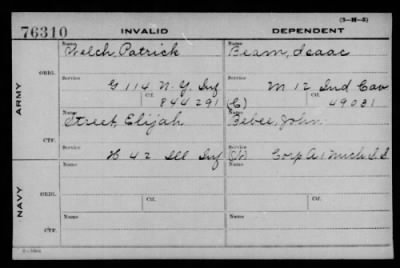 (3-H-5)
76310 INVALID DEPENDENT
Name Name
Welch, Patrick Beam, Isaac
ORIG.
Service Service
G 114 N.Y. Inf M 12 Ind Cav
Ctf. Ctf.
844291 (C) 49031
ARMY
Name Name
Street, Elijah Bebee, John
CTF.
Service Service
H 42 Ill Inf Corp A 1 Mich S.S
Name Name
ORIG.
Service Ctf. Service Ctf.
NAVY
Name Name
CTF.
Service Service